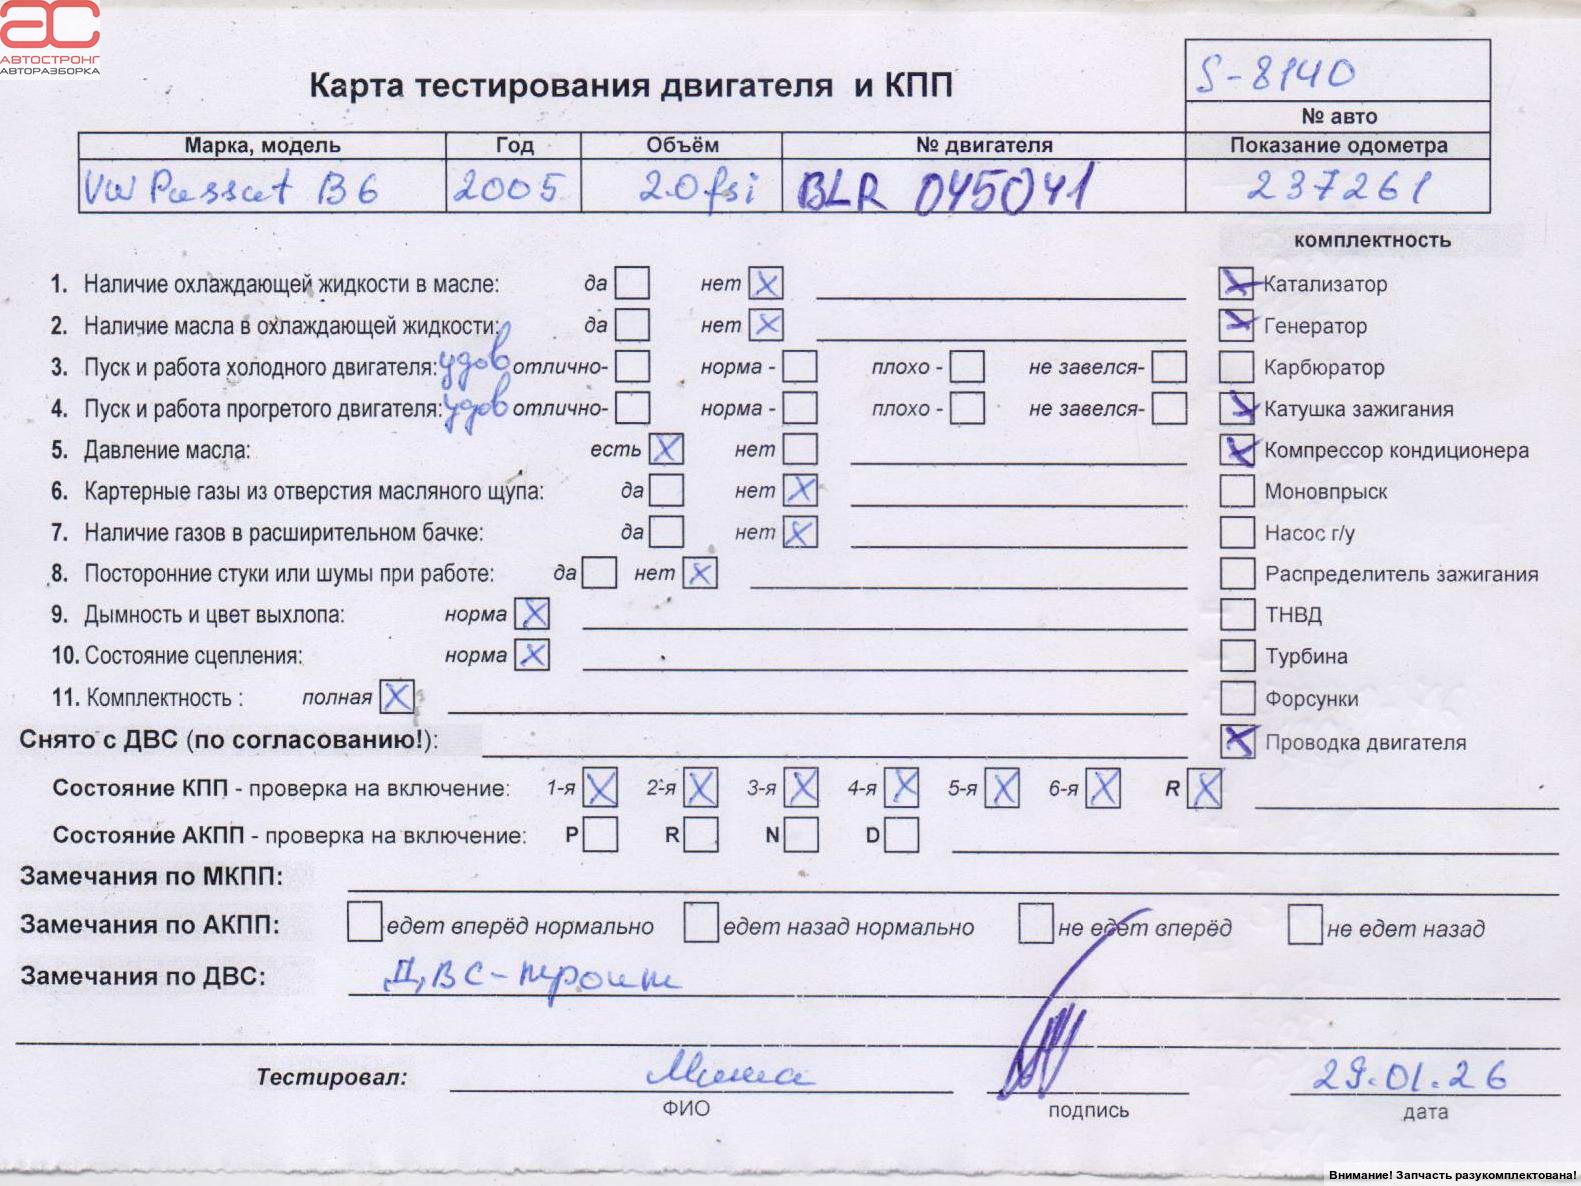 АС
АВТОСТРОНГ
АВТОРАЗБОРКА
S-8140
Карта тестирования двигателя и КПП
№ авто
Марка, модель Год Объём № двигателя Показание одометра
VW Passat B6 2005 2.0 fsi BLR 045041 237261
комплектность
1. Наличие охлаждающей жидкости в масле: да нет X Катализатор
2. Наличие масла в охлаждающей жидкости: да нет X Генератор
3. Пуск и работа холодного двигателя: удов отлично- норма - плохо - не завелся- Карбюратор
4. Пуск и работа прогретого двигателя: удов отлично- норма - плохо - не завелся- Катушка зажигания
5. Давление масла: есть X нет Компрессор кондиционера
6. Картерные газы из отверстия масляного щупа: да нет X Моновпрыск
7. Наличие газов в расширительном бачке: да нет X Насос г/у
8. Посторонние стуки или шумы при работе: да нет X Распределитель зажигания
9. Дымность и цвет выхлопа: норма X ТНВД
10. Состояние сцепления: норма X Турбина
11. Комплектность : полная X Форсунки
Снято с ДВС (по согласованию!): Проводка двигателя
Состояние КПП - проверка на включение: 1-я X 2-я X 3-я X 4-я X 5-я X 6-я X R X
Состояние АКПП - проверка на включение: P R N D
Замечания по МКПП:
Замечания по АКПП: едет вперёд нормально едет назад нормально не едет вперёд не едет назад
Замечания по ДВС: ДВС-троит
Тестировал: Миша 29.01.26
ФИО подпись дата
Внимание! Запчасть разукомплектована!